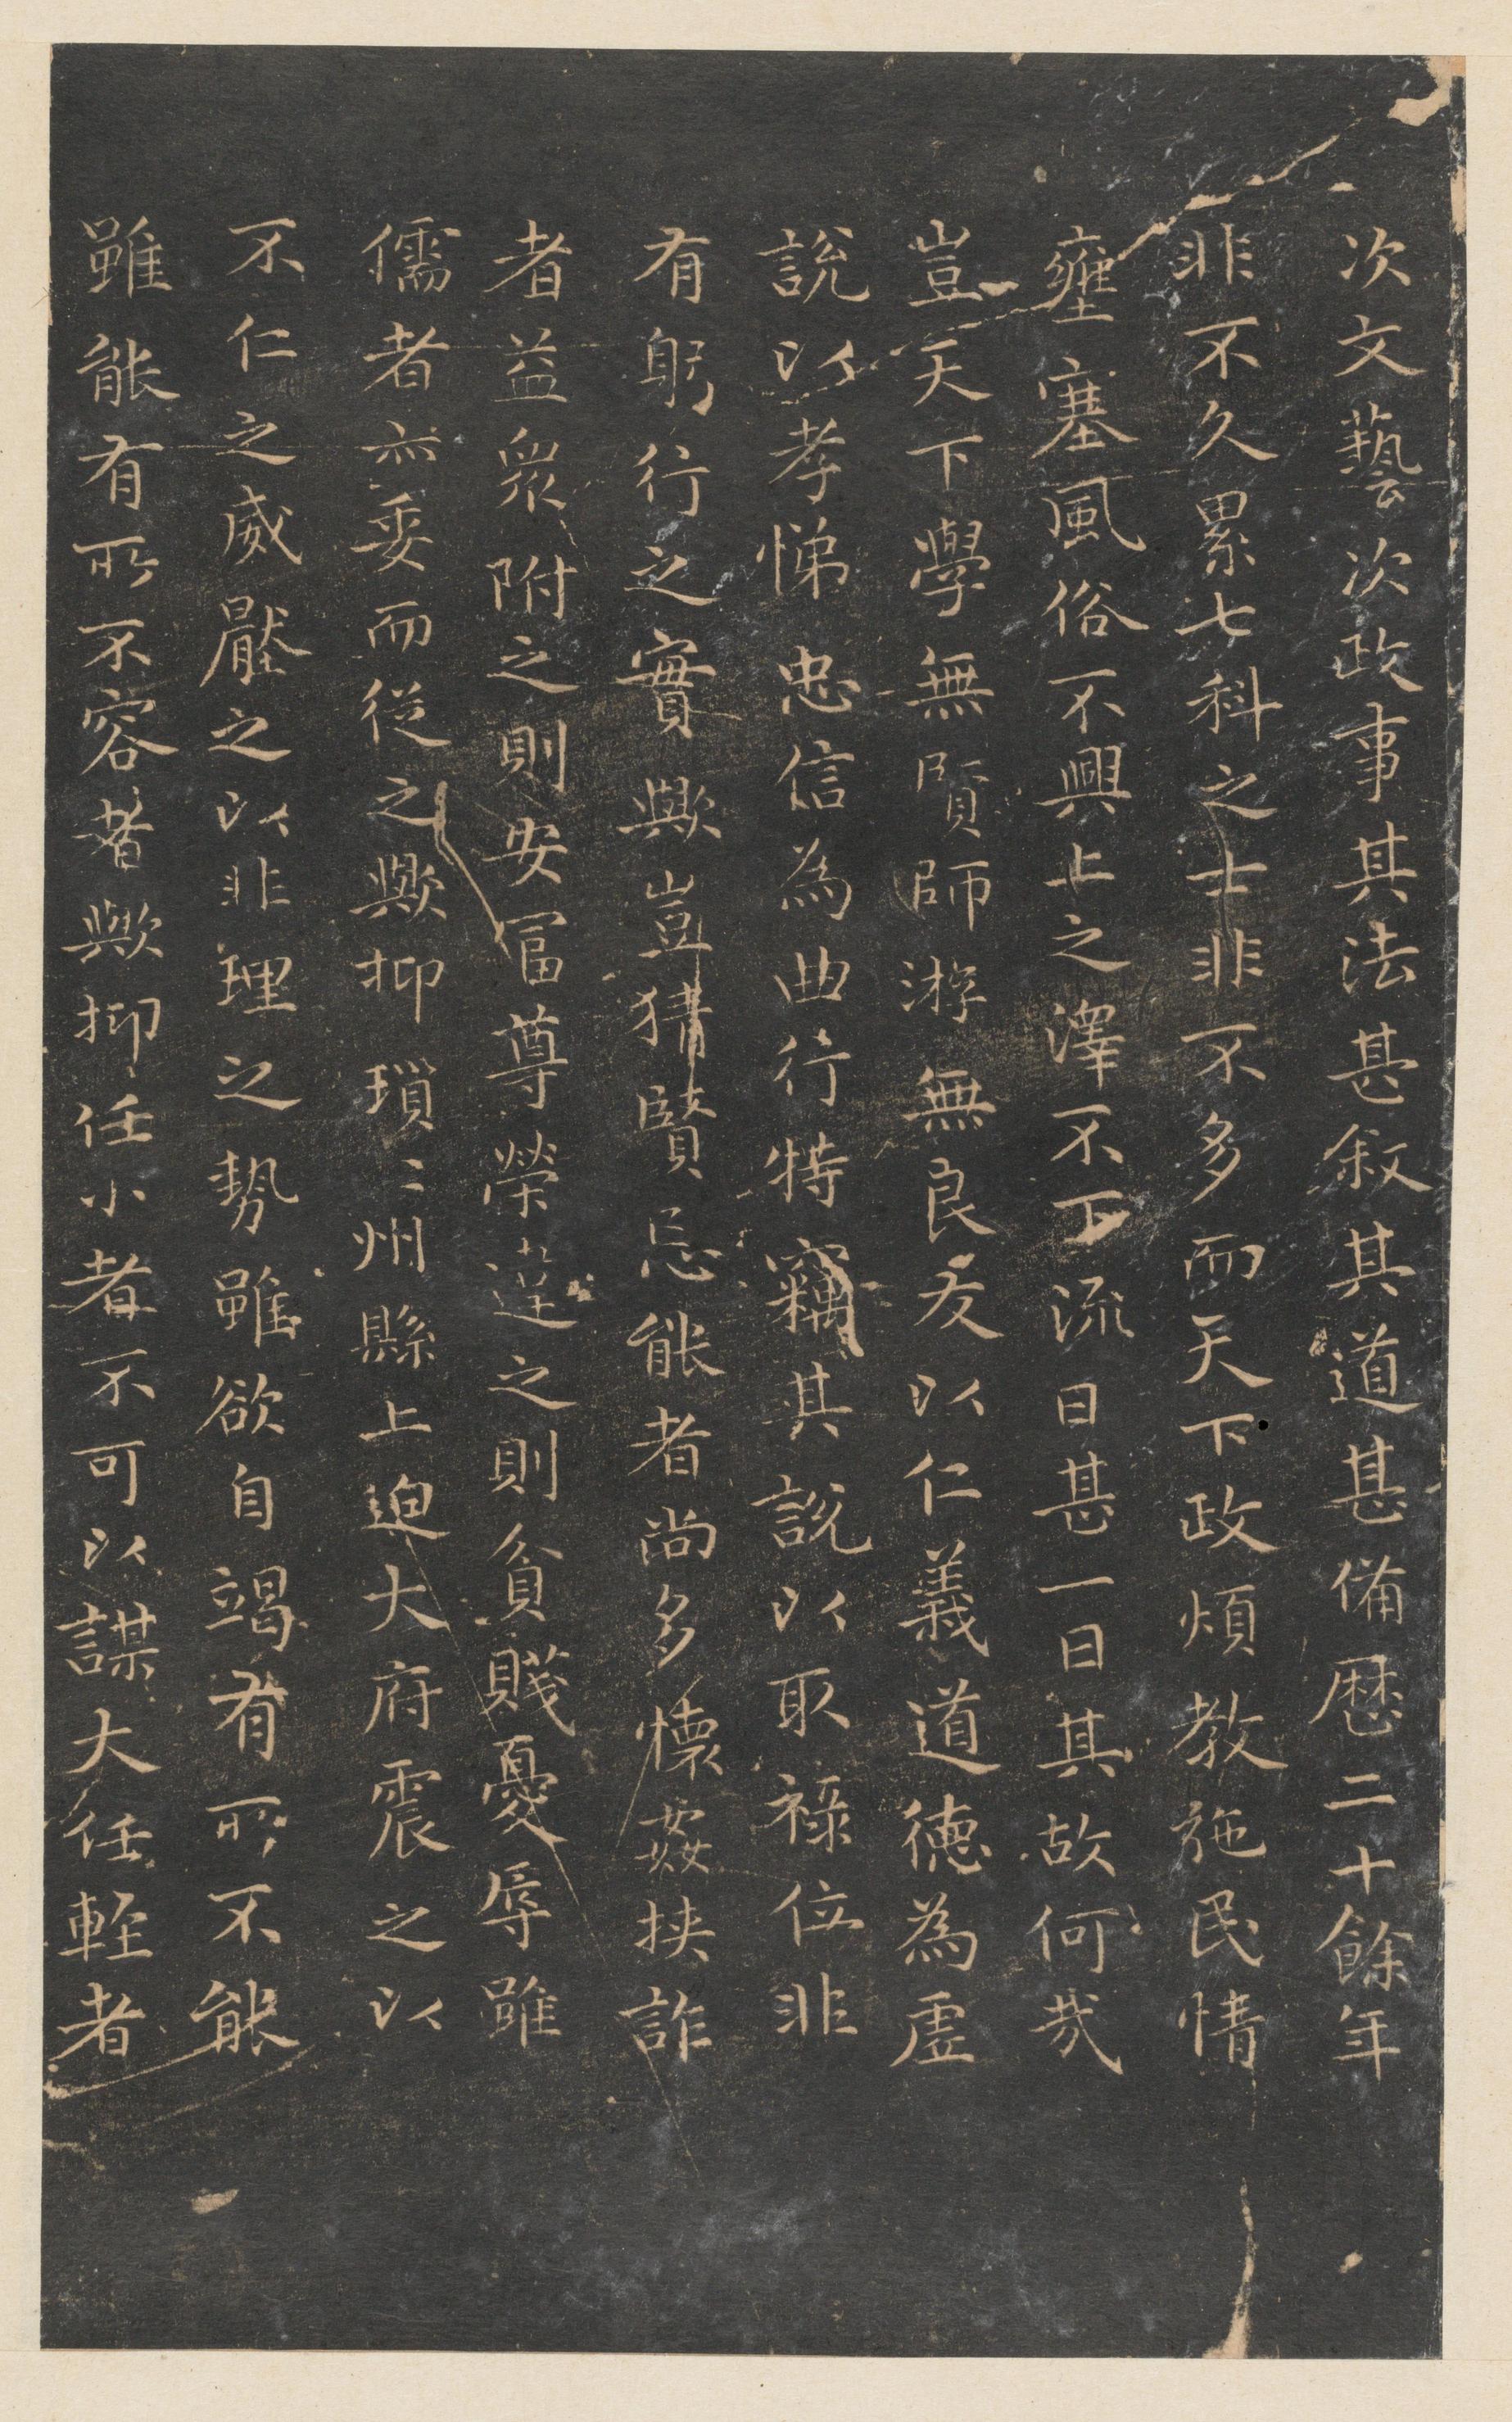 次文藝次政事其法甚敘其道甚備歷二十餘年
非不久累七科之士非不多而天下政煩教施民情
壅塞風俗不興上之澤不下流日甚一日其故何哉
豈天下學無賢師游無良友以仁義道德為虛
說以孝悌忠信為曲行特竊其說以取祿位非
有躬行之實歟豈猜賢忌能者尚多懷姦挾詐
者益眾附之則安富尊榮達之則貧賤憂辱雖
儒者亦委而從之歟抑瑣〻州縣上迫大府震之以
不仁之威壓之以非理之勢雖欲自竭有所不能
雖能有所不容者歟抑任小者不可以謀大任輕者